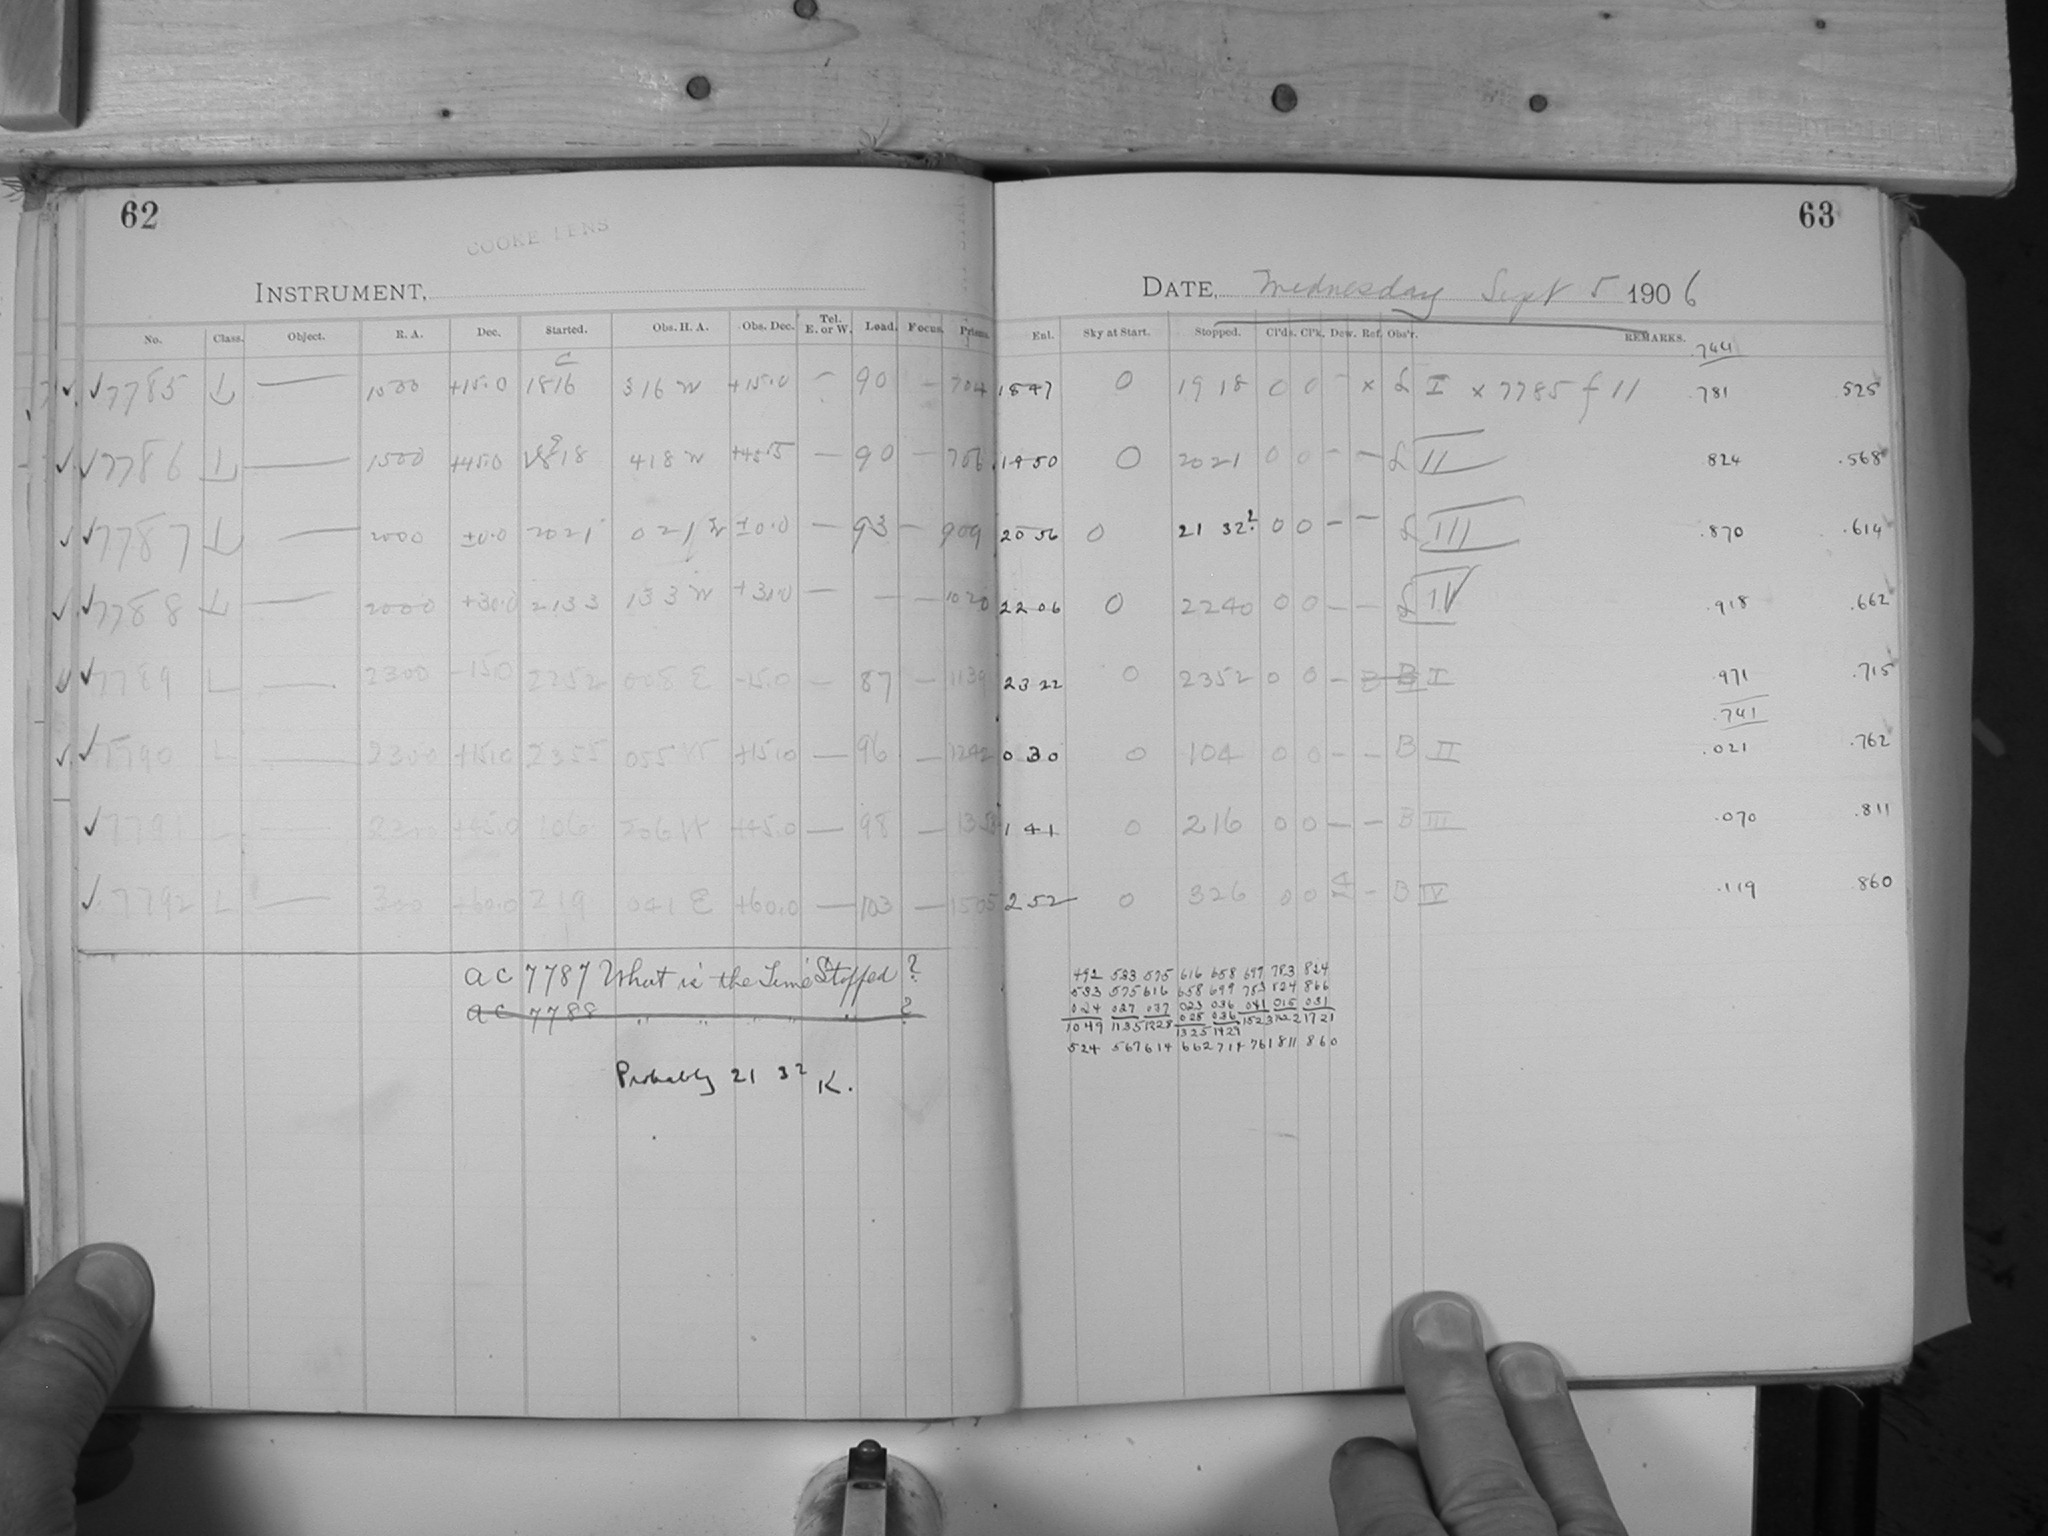 62
COOKE LENS
INSTRUMENT,
No. Class. Object. R. A. Dec. Started. Obs. H. A. Obs. Dec. Tel. E. or W. Load. Focus. Prisms.
7785 — 1500 +15.0 1816 316 W +15.0 – 90 – 704
7786 — 1500 +45.0 1918 418 W — 90 – 706
7787 — 2000 ±0.0 2021 021 W ±0.0 — 93 – 909
7788 — 2000 +30.0 2133 133 W +30.0 — — — 1020
7789 L — 2300 -15.0 2252 008 E -15.0 — 87 – 1139
7790 L — 2300 +15.0 2355 055 W +15.0 — 96 — 1242
7791 +45.0 106 206 W +45.0 — 98 —
7792 L — 300 +60.0 219 041 E +60.0 — 103 — 1505
ac 7787 What is the Time Stopped ?
ac 7788 " " " " " ?
Probably 21 32 K.
63
DATE, Wednesday Sept 5 1906
Enl. Sky at Start. Stopped. Cl'ds. Cl'k. Dew. Ref. Obs'r. REMARKS.
.744
1847 0 1918 0 0 – x L I x 7785 f 11 .781 .525
1950 0 2021 0 0 – – L II .824 .568
2056 0 21 32? 0 0 – – L III .870 .614
2206 0 2240 0 0 – – L IV .918 .662
2322 0 2352 0 0 – B I .971 .715
.741
030 0 104 0 0 – – B II .021 .762
141 0 216 0 0 — — B III .070 .811
252 0 326 0 0 – B IV .119 .860
492 533 575 616 658 699 783 824
533 575 616 658 699 783 824 866
024 027 037 023 036 041 015 031
1049 1135 1228 1325 1429 1523 1622 1721
524 567 614 662 714 761 811 860